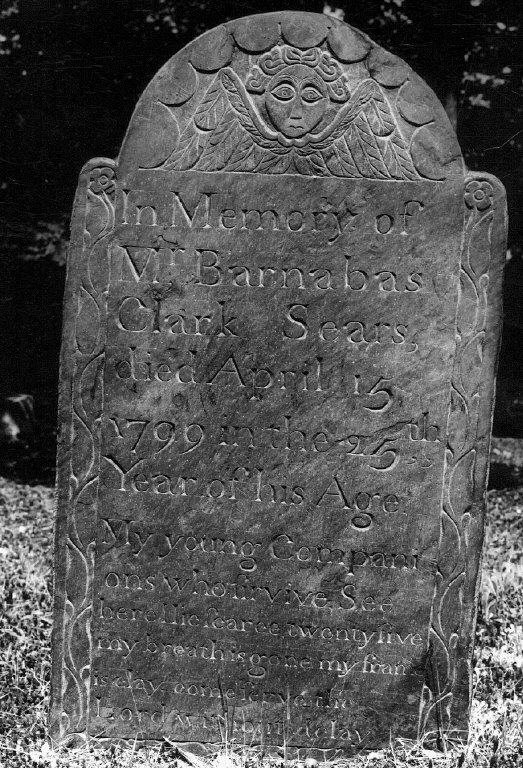 In Memory of
Mr Barnabas
Clark Sears,
died April 15
1799 in the 25th
Year of his Age.
My young Compani
ons who ſurvive, See
here I lie ſcarce twenty five
my breath is gone my frame
is clay come ſerve the
Lord without delay